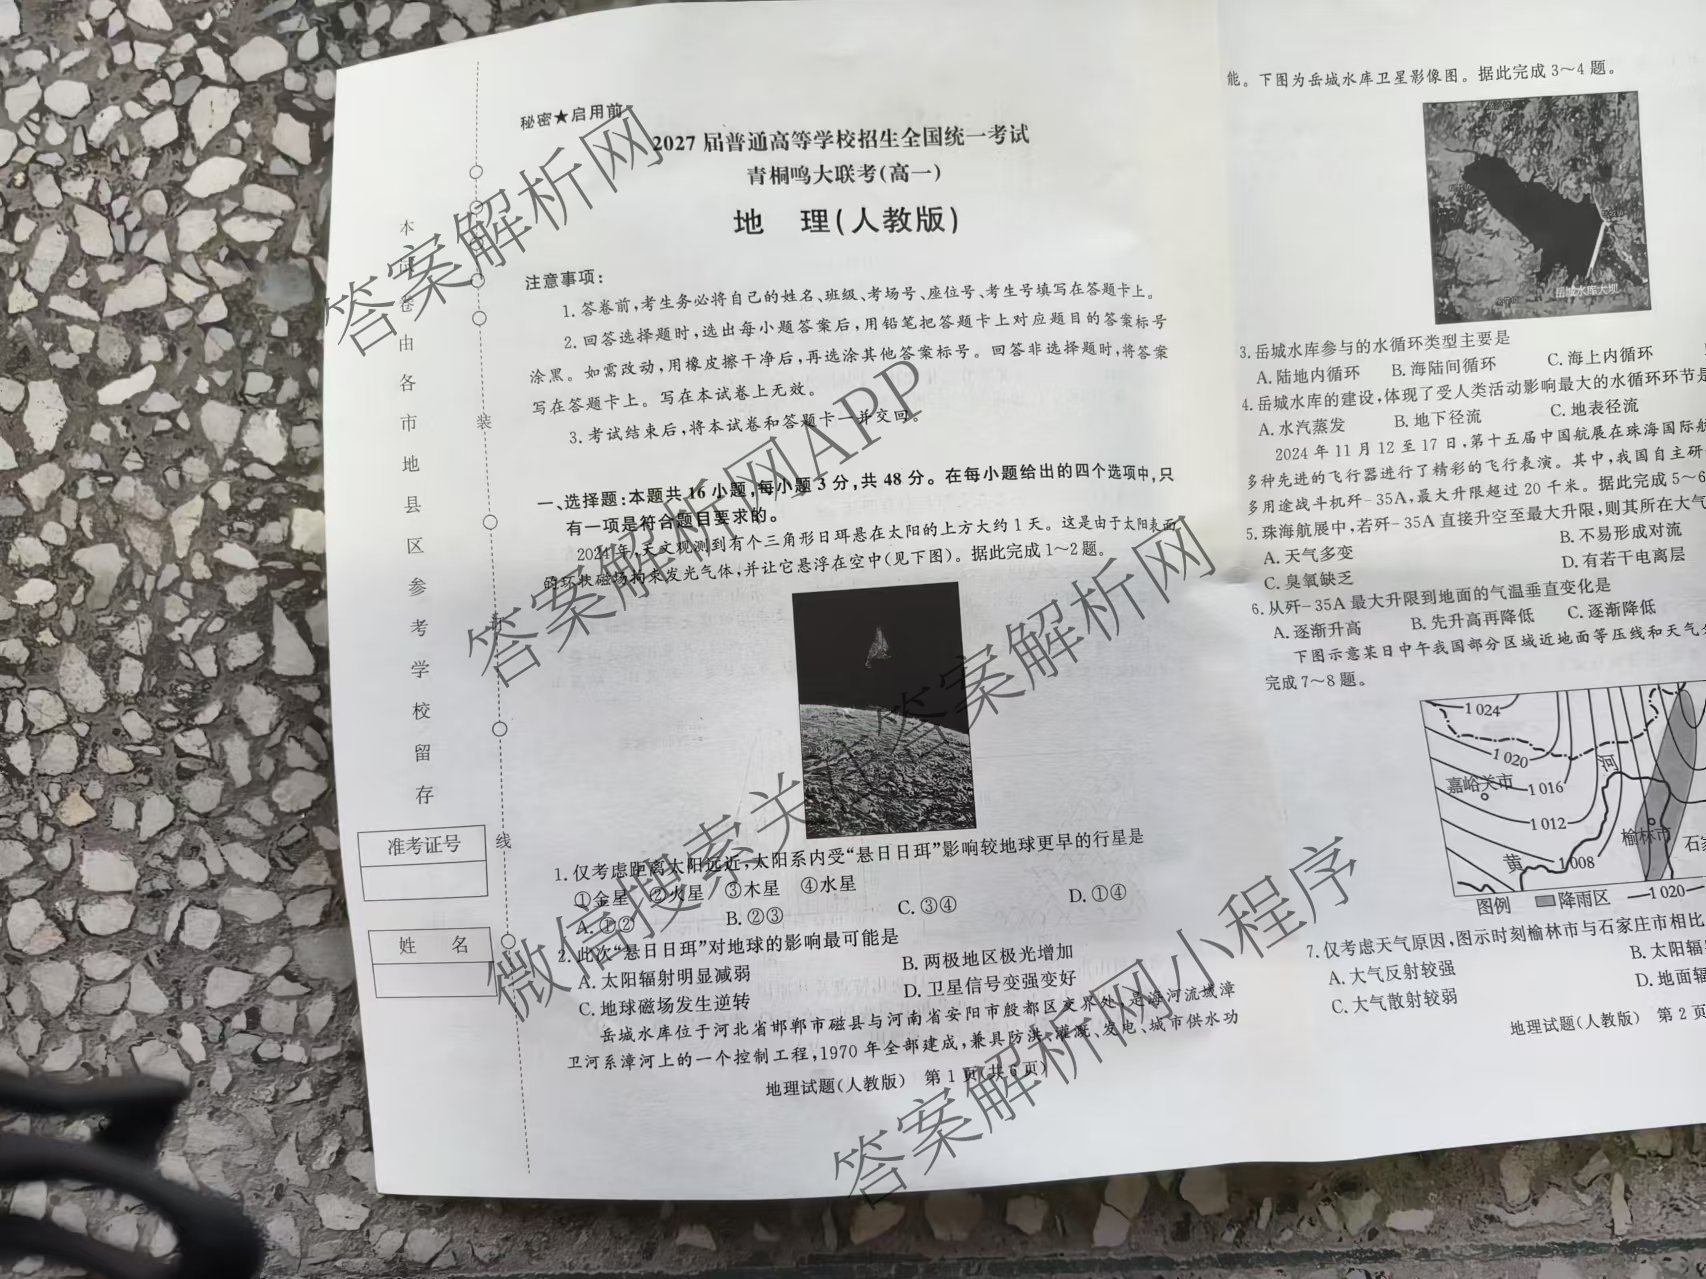 秘密★启用前
2027届普通高等学校招生全国统一考试
青桐鸣大联考(高一)
地 理(人教版)
注意事项:
1.答卷前,考生务必将自己的姓名、班级、考场号、座位号、考生号填写在答题卡上。
2.回答选择题时,选出每小题答案后,用铅笔把答题卡上对应题目的答案标号
涂黑。如需改动,用橡皮擦干净后,再选涂其他答案标号。回答非选择题时,将答案
写在答题卡上。写在本试卷上无效。
3.考试结束后,将本试卷和答题卡一并交回。
一、选择题:本题共16小题,每小题3分,共48分。在每小题给出的四个选项中,只
有一项是符合题目要求的。
2024年,天文观测到有个三角形日珥悬在太阳的上方大约1天。这是由于太阳表面
的环状磁场拘束发光气体,并让它悬浮在空中(见下图)。据此完成1～2题。
1.仅考虑距离太阳远近,太阳系内受“悬日日珥”影响较地球更早的行星是
①金星 ②火星 ③木星 ④水星
A.①② B.②③ C.③④ D.①④
2.此次“悬日日珥”对地球的影响最可能是
A.太阳辐射明显减弱 B.两极地区极光增加
C.地球磁场发生逆转 D.卫星信号变强变好
岳城水库位于河北省邯郸市磁县与河南省安阳市殷都区交界处,是海河流域漳
卫河系漳河上的一个控制工程,1970年全部建成,兼具防洪、灌溉、发电、城市供水功
地理试题(人教版) 第1页(共6页)
本试卷由各市地县区参考学校留存
装
订
线
准考证号
姓 名
能。下图为岳城水库卫星影像图。据此完成3～4题。
岳城水库大坝
3.岳城水库参与的水循环类型主要是
A.陆地内循环 B.海陆间循环 C.海上内循环
4.岳城水库的建设,体现了受人类活动影响最大的水循环环节是
A.水汽蒸发 B.地下径流 C.地表径流
2024年11月12至17日,第十五届中国航展在珠海国际航
多种先进的飞行器进行了精彩的飞行表演。其中,我国自主研
多用途战斗机歼-35A,最大升限超过20千米。据此完成5～6
5.珠海航展中,若歼-35A直接升空至最大升限,则其所在大气
A.天气多变 B.不易形成对流
C.臭氧缺乏 D.有若干电离层
6.从歼-35A最大升限到地面的气温垂直变化是
A.逐渐升高 B.先升高再降低 C.逐渐降低
下图示意某日中午我国部分区域近地面等压线和天气
完成7～8题。
1024
1020
1016
1012
1008
嘉峪关市
榆林市
石家
黄
河
图例 降雨区 1020
7.仅考虑天气原因,图示时刻榆林市与石家庄市相比
A.大气反射较强 B.太阳辐
C.大气散射较弱 D.地面辐
地理试题(人教版) 第2页
答案解析网
答案解析网APP
答案解析网
微信搜索关注答案解析网小程序
答案解析网